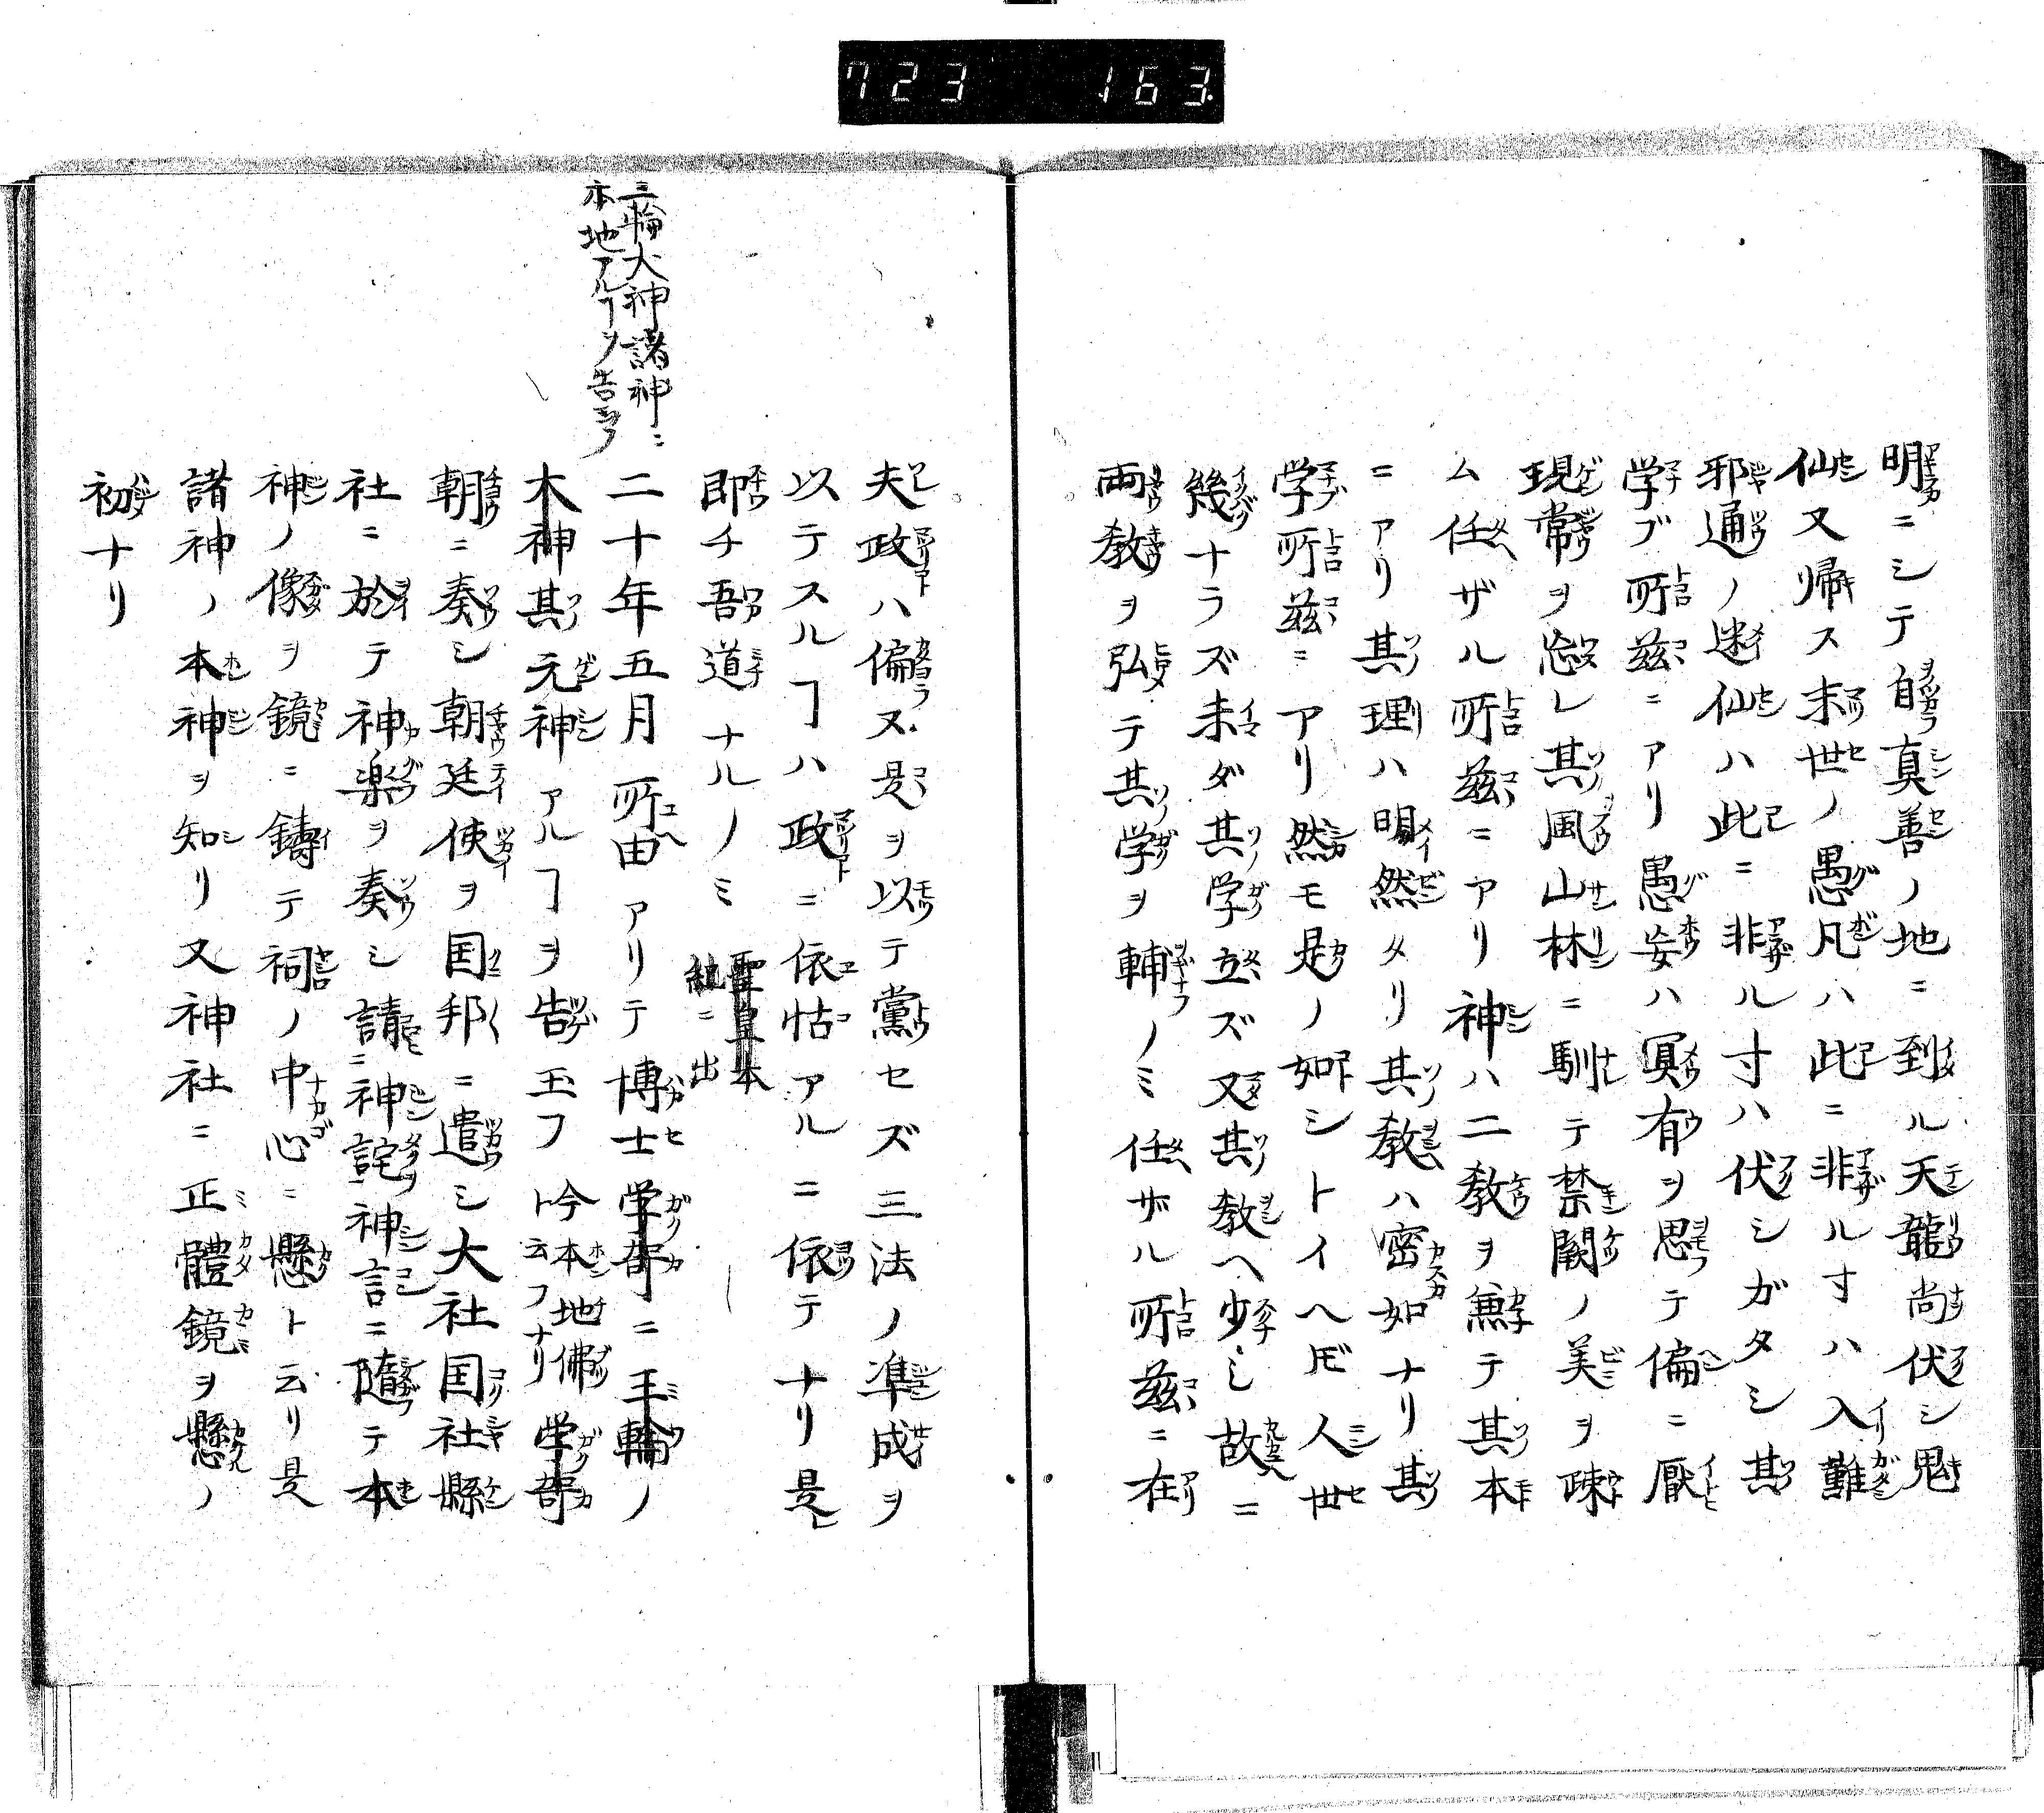 723 163
明ニシテ自真善ノ地ニ到ル天龍尚伏シ鬼
仙又帰ス末世ノ愚凡ハ此ニ非ル寸ハ入難
邪通ノ迷仙ハ此ニ非ル寸ハ伏シガタシ其
学ブ所茲ニアリ愚妄ハ冥有ヲ思テ偏ニ厭
現常ヲ忘レ其風山林ニ馴テ禁闕ノ美ヲ疎
ム任ザル所茲ニアリ神ハ二教ヲ兼テ其本
ニアリ其理ハ明然タリ其教ハ密如ナリ其
学所茲ニアリ然モ是ノ如シトイヘ𪜈人世
幾ナラズ未ダ其学立ズ又其教ヘ少シ故ニ
両教ヲ弘テ其学ヲ輔ノミ任ザル所茲ニ在
夫政ハ偏又是ヲ以テ黨セズ三法ノ準成ヲ
以テスルヿハ政ニ依怙アルニ依テナリ是
即チ吾道ナルノミ 聖皇本紀ニ出
三輪大神諸神ニ
本地アルヿヲ告玉フ
二十年五月所由アリテ博士学哿ニ王輪ノ
木神其元神アルヿヲ告玉フ今本地佛ト云フナリ学哿
朝ニ奏シ朝廷使ヲ国邦ニ遣シ大社国社縣
社ニ於テ神楽ヲ奏シ請ニ神託神言ニ随テ本
神ノ像ヲ鏡ニ鋳テ祠ノ中心ニ懸ト云リ是
諸神ノ本神ヲ知リ又神社ニ正體鏡ヲ懸ノ
初ナリ